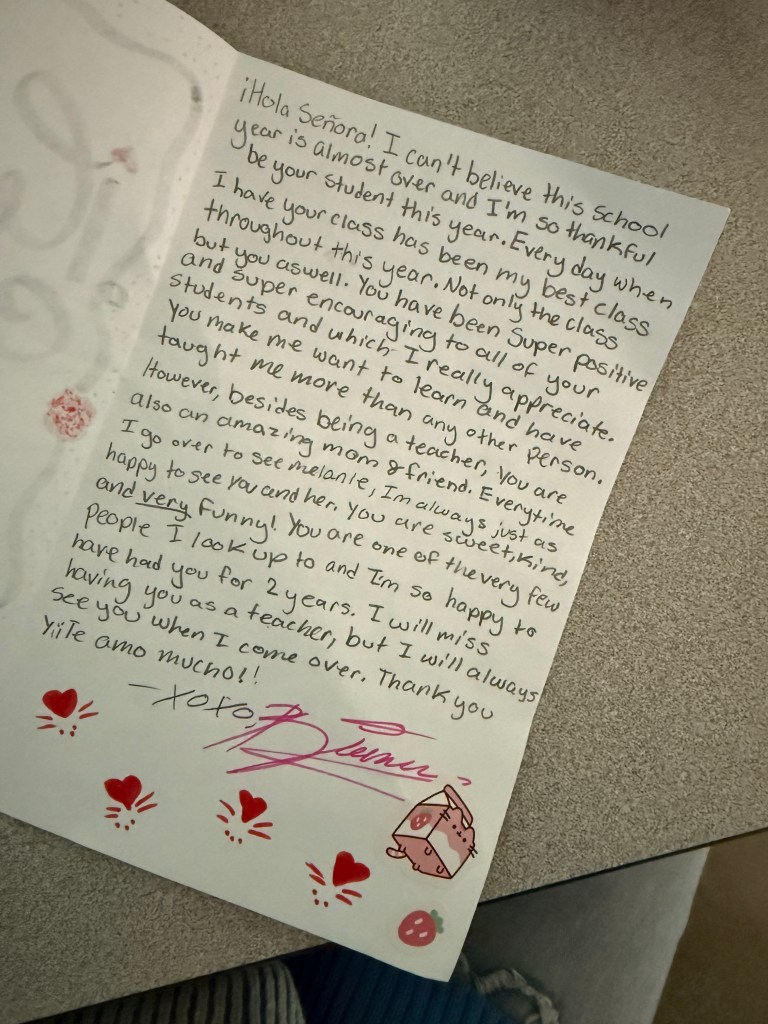 ¡Hola Señora! I can't believe this school
year is almost over and I'm so thankful
be your student this year. Every day when
I have your class has been my best class
throughout this year. Not only the class
but you aswell. You have been super positive
and super encouraging to all of your
students and which I really appreciate.
You make me want to learn and have
taught me more than any other person.
However, besides being a teacher, you are
also an amazing mom & friend. Everytime
I go over to see melanie, I'm always just as
happy to see you and her. You are sweet, kind,
and very funny! You are one of the very few
people I look up to and I'm so happy to
have had you for 2 years. I will miss
having you as a teacher, but I will always
see you when I come over. Thank you
y¡¡Te amo mucho!!
—xoxo,